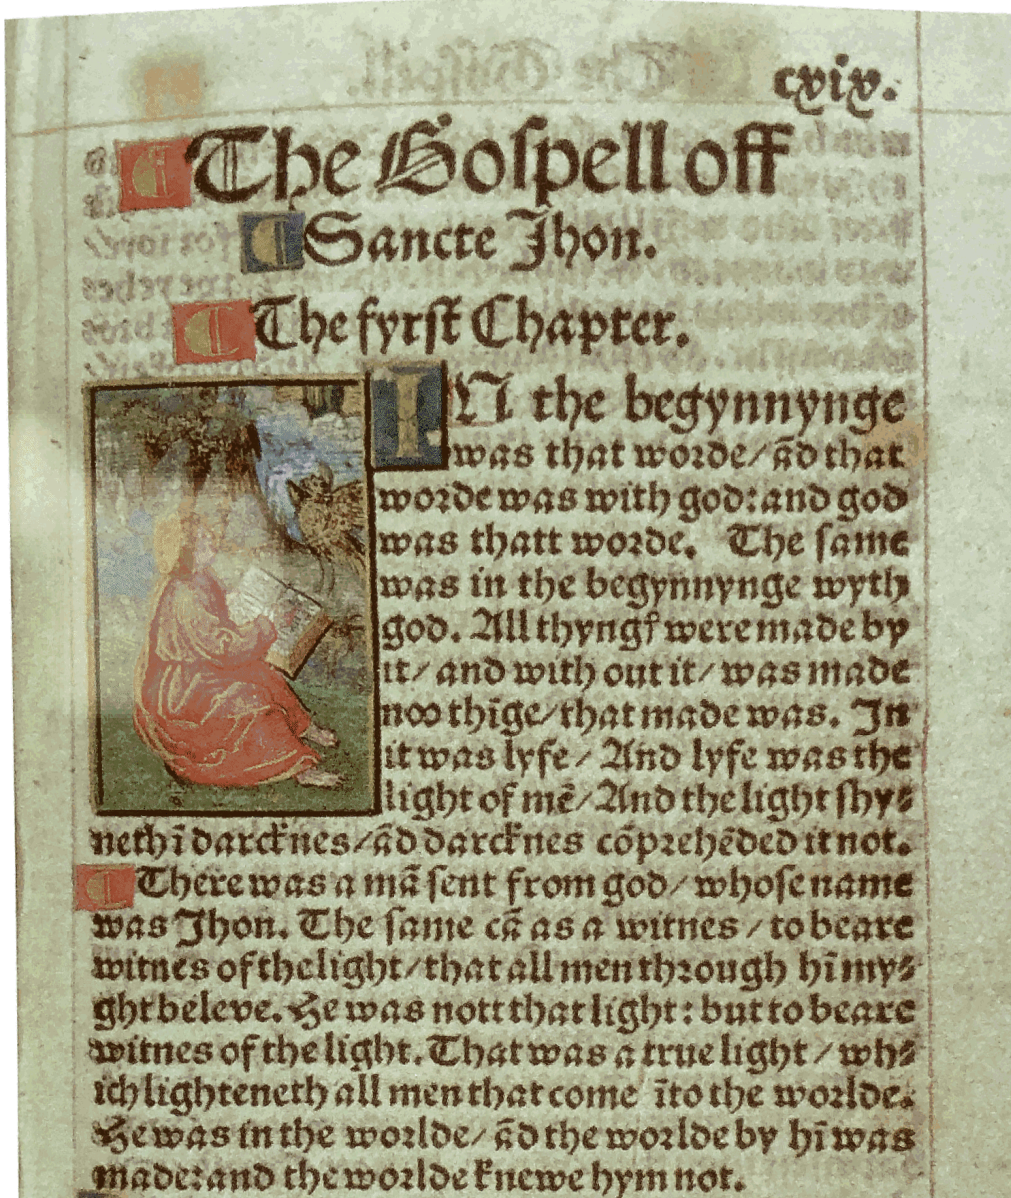 cxix.
The Gospell off
Sancte Jhon.
The fyrst Chapter.
IN the begynnynge
was that worde/ ād that
worde was with god: and god
was thatt worde. The same
was in the begynnynge wyth
god. All thyngꝭ were made by
it/ and with out it/ was made
noo thīge/ that made was. In
it was lyfe/ And lyfe was the
light of mē/ And the light shy⸗
neth ī darcknes/ ād darcknes cōprehēded it not.
There was a mā sent from god/ whose name
was Jhon. The same cā as a witnes / to beare
witnes of the light/ that all men through hī my⸗
ght beleve. He was nott that light: but to beare
witnes of the light. That was a true light / wh⸗
ich lighteneth all men that come īto the worlde.
He was in the worlde/ ād the worlde by hī was
made: and the worlde knewe hym not.